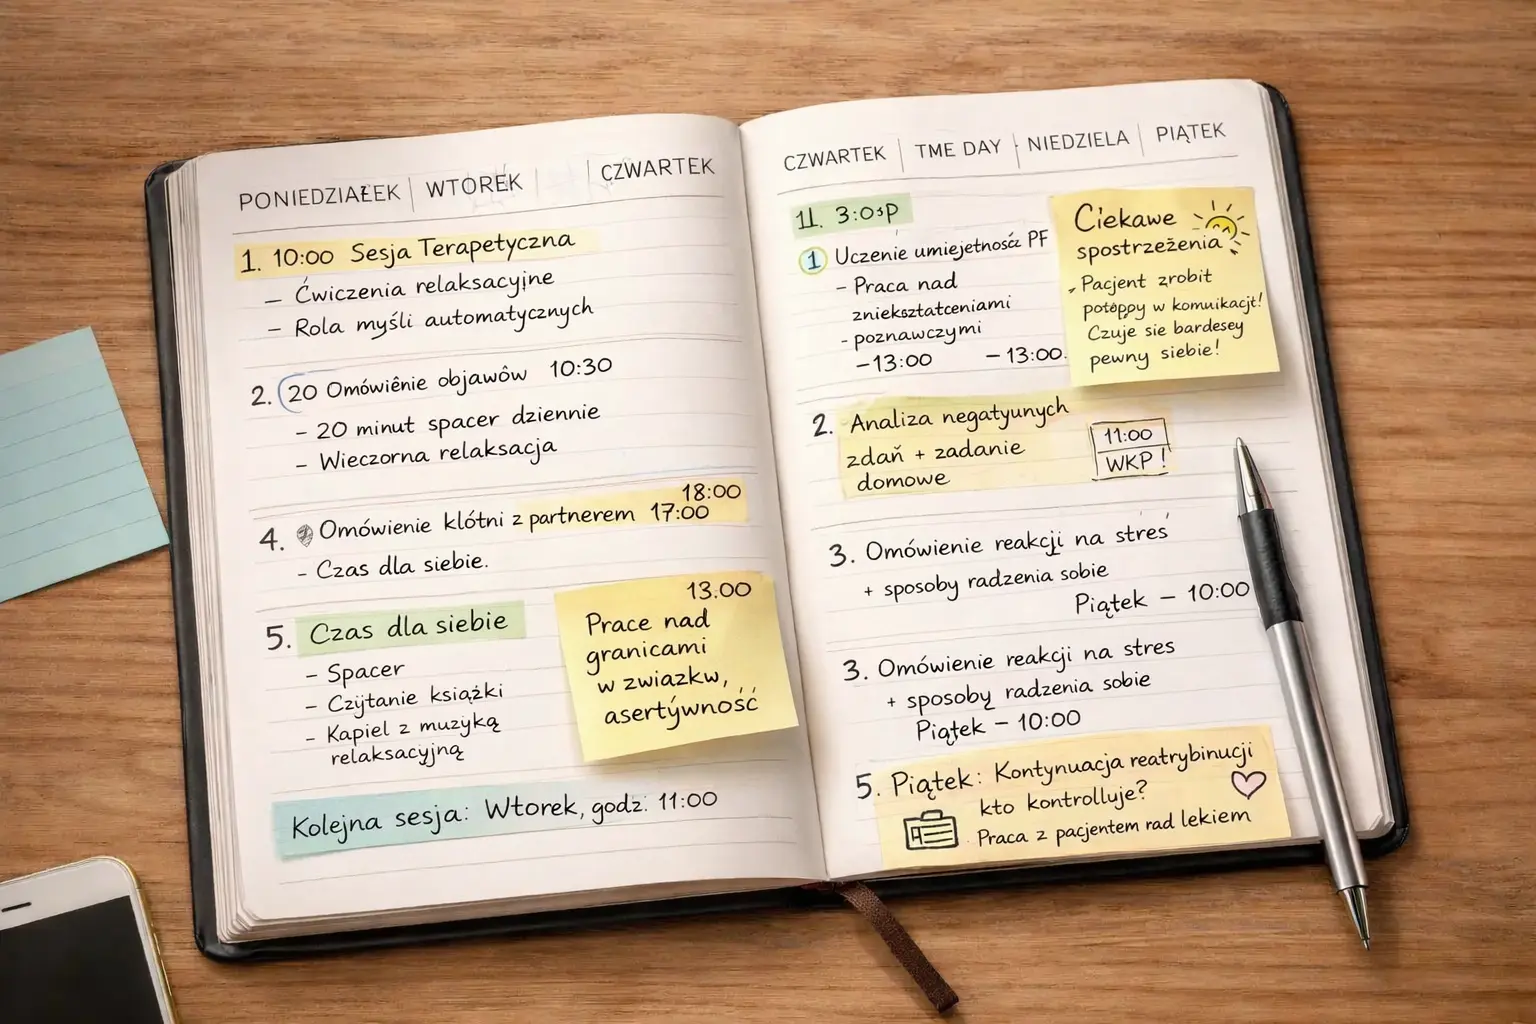 PONIEDZIAŁEK | WTOREK | CZWARTEK
1. 10:00 Sesja Terapetyczna
– Ćwiczenia relaksacyjne
- Rola myśli automatycznych
2. 20 Omówiênie objawów 10:30
- 20 minut spacer dziennie
- Wieczorna relaksacja
18:00
4. Omówienie kłótni z partnerem 17:00
- Czas dla siebie.
5. Czas dla siebie
- Spacer
- Czýtanie książki
- Kapiel z muzyką
relaksacyjną
13.00
Prace nad
granicami
w zwiazkw,
asertýwność
Kolejna sesja: Wtorek, godz: 11:00
CZWARTEK | TME DAY | NIEDZIELA | PIĄTEK
11. 3:0
1 Uczenie umiejetnośc PF
- Praca nad
zniekształceniami
- poznawczymi
-13:00 - 13:00.
Ciekawe
spostrzeżenia
Pacjent zrobit
potęppy w komuikacjt!
Czuje sie bardesey
pewny siebie!
2. Analiza negatyunych
zdań + zadanie
domowe
11:00
WKP!
3. Omówienie reakcji na stres
+ sposoby radzenia sobie
Piątek – 10:00
3. Omówienie reakcji na stres
+ sposoby radzenia sobie
Piątek – 10:00
5. Piątek: Kontynuacja reatrybinucji
kto kontrolluje?
Praca z pacjentem rad lekiem